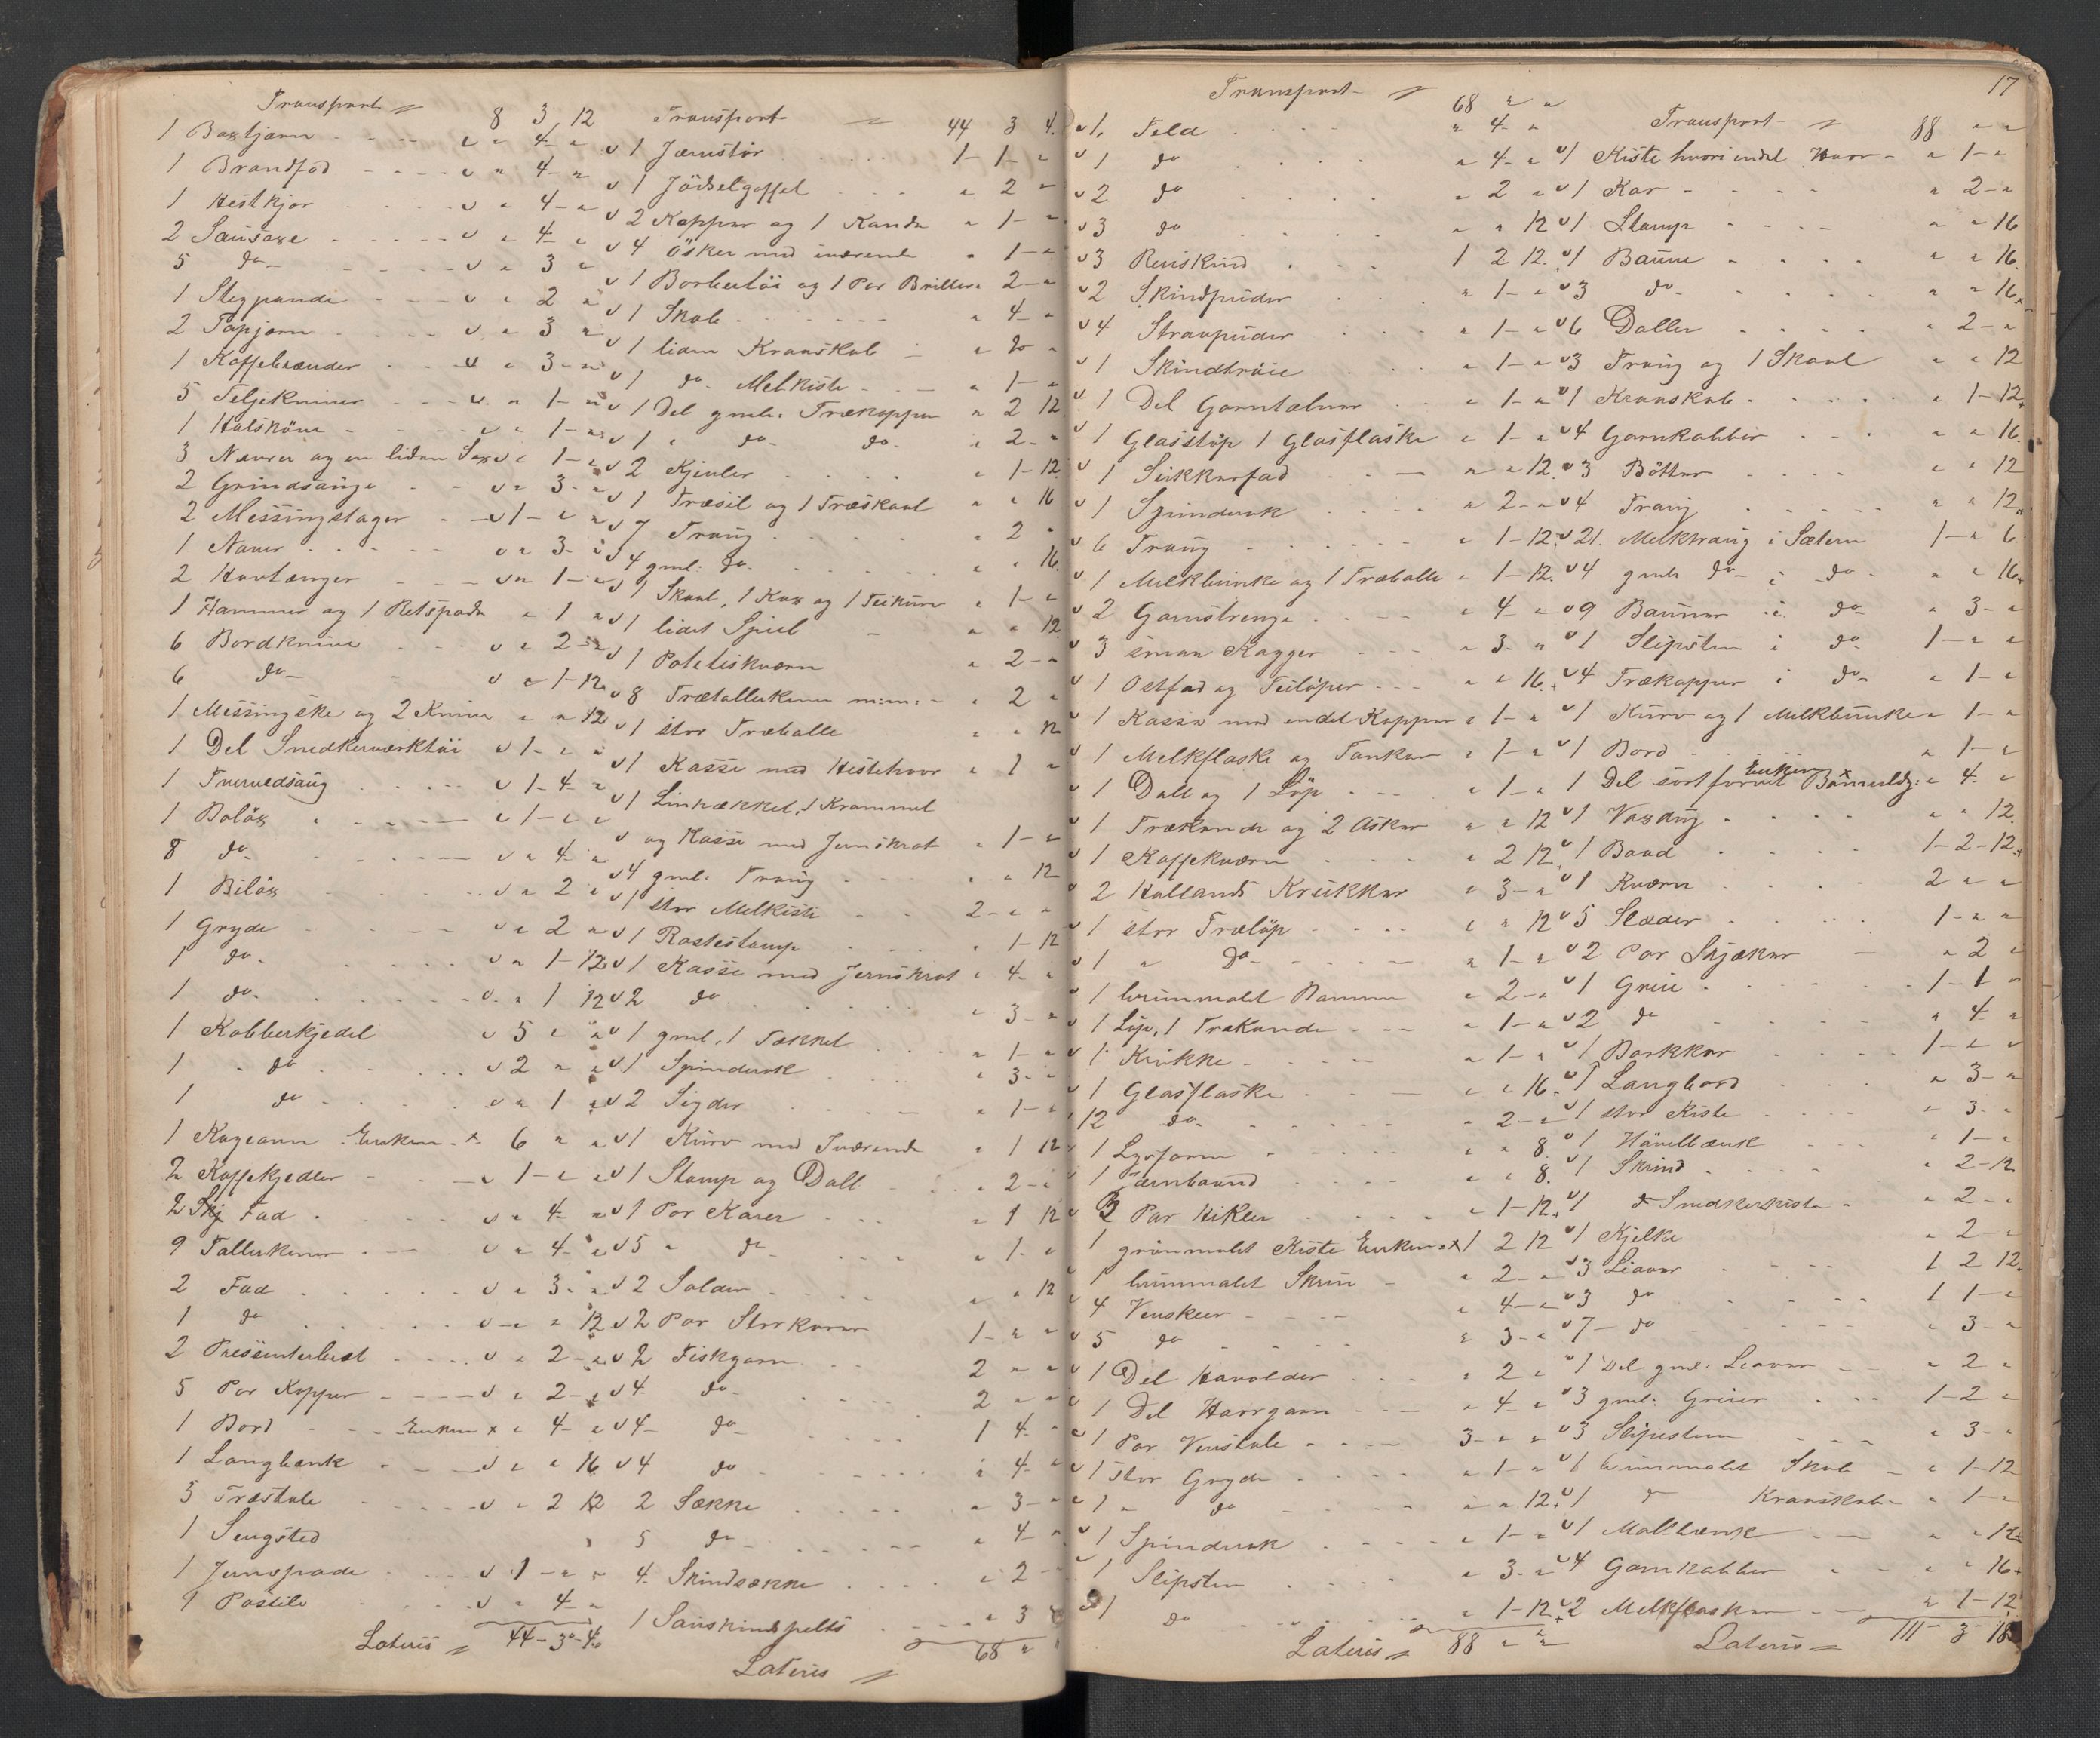 Transport 8 3 12
1 Baxtjærn " 4 "
1 Brandfod " 4 "
1 Hestkjør " 4 "
2 Sausaxe " 4 "
5 do " 3 "
1 Stegpande " 2 "
2 Tapjærn " 3 "
1 Kaffebrænder " 3 "
5 Teljeknive " 1 "
1 " 1 "
3 Navrer og en liden Sax " 1 "
2 Grindsauge " 3 "
2 Messingstager 1 " "
1 Naver " 3 "
2 Hovtænger " 1 "
1 Hammer og 1 Retspade " 1 "
6 Bordknive " 2 "
6 do " 1 12
1 Messingske og 2 Knive " " 12
1 Del Snedkerværktøi 1 " "
1 Tvervedsaug 1 4 "
1 Boløx 1 " "
8 do " 4 "
1 Biløx " 2 "
1 Gryde " 2 "
1 do " 1 12
1 do " 1 12
1 Kobberkjedel 5 " "
1 do 2 " "
1 do " 1 "
1 Kageovn Enken x 6 " "
2 Kaffekjedler " 1 "
2 Fad " 4 "
9 Tallerkener " 4 "
2 Fad " 3 "
1 do " " 12
2 Pressenterbret " 2 "
5 Par Kopper " 2 "
1 Bord Enken x " 4 "
1 Langbænk " " 16
3 Træstole " 2 12
1 Sengsted
1 Jernspade 1 " "
1 Postile " 4 "
Lateris 44 - 3 - 4
Transport 44 3 4
1 Jærnstør 1 1 "
1 Jødselgaffel " 2 "
2 Kopper og 1 Kande " 1 "
4 Øsker med inværende " 1 "
1 Barbertøi og 1 Par Briller " 2 "
1 Skab " 4 "
1 liden Kranskab
1 do Melkiste " 1 "
1 Del gmle. Trækopper " 2 12
1 " do do " 2 "
2 Kjevler " 1 12
1 Træsil og 1 Træskaal " " 16
7 Traug " 2 "
4 gml. do " " 16
1 Skaal, 1 Kax og 1 " 1 "
1 lidet Speil " " 12
1 Poteteskværn " 2 "
8 Trætallerkener m.m. " 2 "
1 stor Træballe " " 12
1 Kasse med Hestehoor " 1 "
1 Linhækkel, 1 Krammel
og Kasse med Jernskrot " 1 "
4 gml. Traug " " 12
1 stor Melkiste 2 " "
1 Rostestamp " 1 12
1 Kasse med Jernskrot " 4 "
2 do " 3 "
1 gml. 1 Tækkel " 1 "
1 Spinderok " 3 "
2 Sigder " 1 "
1 Kurv med Inværende " 1 12
1 Stamp og Dall " 2 "
1 Par Karer " 1 12
5 " do " 1 "
2 Solder " " 12
2 Par Storkarer 1 " "
2 Fiskgarn 2 " "
4 do 2 " "
4 do 1 4 "
4 do " 4 "
2 Sække " 3 "
5 do " 4 "
4 Skindsække " 2 "
1 Sauskindspelts " 3
Lateris 68 "
17
Transport 68 " "
1 Feld " 4 "
1 do " 4 "
2 do " 2 "
3 do " " 12
3 Renskind 1 2 12
2 Skindpuder " 1 "
4 Straapuder " 1 "
1 Skindtrøie " 1 "
1 Del Garntalner " 1 "
1 Glasstøp 1 Glasflaske " 1 "
1 Sukkerfad " " 12
1 Spinderok " 2 "
6 Traug " 1 12
1 Melkbunke og 1 Træballe " 1 12
2 Garnstrenge " 4 "
3 smaa Kagger " 3 "
1 Ostfad og " " 16
1 Kasse med endel Kopper " 1 "
1 Melkflaske og Tankar " 1 "
1 Dall og 1 Løp " 1 "
1 Trækande og 2 Asker " " 12
1 Kaffekværn " 2 12
2 Hollands Krukker " 3 "
1 stor Træløp " " 12
1 " do " 1 "
1 brunmalet Bomme " 2 "
1 Løp, 1 Trækande " 1 "
1 Krukke " 1 "
1 Glasflaske " " 16
12 do " 2 "
1 Lysform " " 8
1 Jærnbaand " " 8
2 Par Hikler " 1 12
1 grønmalet Kiste Enken x 1 2 12
1 brunmalet Skrin " 2 "
4 Venskeer " 4 "
5 do " 3 "
1 Del Havolder " 2 "
1 Del Haargarn " 4 "
1 Par Venstole 3 " "
1 Stor Gryde " 1 "
1 " do " " 12
1 Spinderok " 1 "
1 Slipsten " 3 "
1 do " 1 12
Lateris 88 " "
Transport 88 " "
1 Kiste hvori endel Haar " 1 "
1 Kar " 2 "
1 Stamp " " 16
1 Baune " " 16
3 do " " 16
6 Daller " 2 "
3 Traug og 1 Skaal " " 12
1 Kranskab " 1 12
4 Garnkabber " " 16
3 Bøtter " " 12
4 Traug " " 12
21 Melktraug i Sætern 1 " 6
4 gmle do i do " " 16
9 Bauner i do " 3 "
1 Slipsten i do 1 " "
4 Trækopper i do " 1 "
1 Kurv og 1 Melkbunke " 1 "
1 Bord " 1 "
1 Del sortfarvet Enken x " 4 "
1 Vaxdug " " 12
1 Baad 1 2 12
1 Kværn 2 " "
5 Slæder 1 " "
2 Par Skjæker " 2 "
1 Greie 1 1 "
2 do " 4 "
1 Barkkar 1 " "
1 Langbord " 3 "
1 stor Kiste " 3 "
1 Høvelbænk " 1 "
1 Skrind " 2 12
1 do Snedkerkiste " 2 "
1 Kjelke " 2 "
3 Liaaer 1 2 12
3 do 1 1 "
7 do " 3 "
1 Del gml. Leaaer " 2 "
3 gml. Greier 1 2 "
3 Slipestene " 3 "
1 brunmalet Skab " 1 12
1 do Kranskab " 1 "
1 Maltbænk " " 12
4 Garnkabber " " 16
2 Melkflasker " 1 12
Lateris 111 - 3 - 18